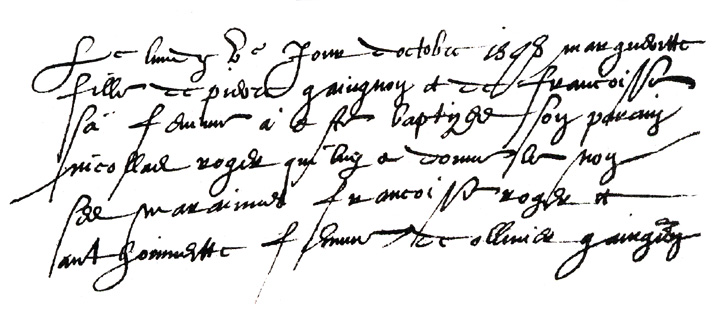 Le lundy Ve Jour doctobre 1598 margueritte
fille de pierre gaingnoy et de francoisse
sa femme a este baptizee son parain
nicollas roger qui luy a donne le nom
ses maraines francoisse roger et
anthoinnette femme de ollivier gaingnoy